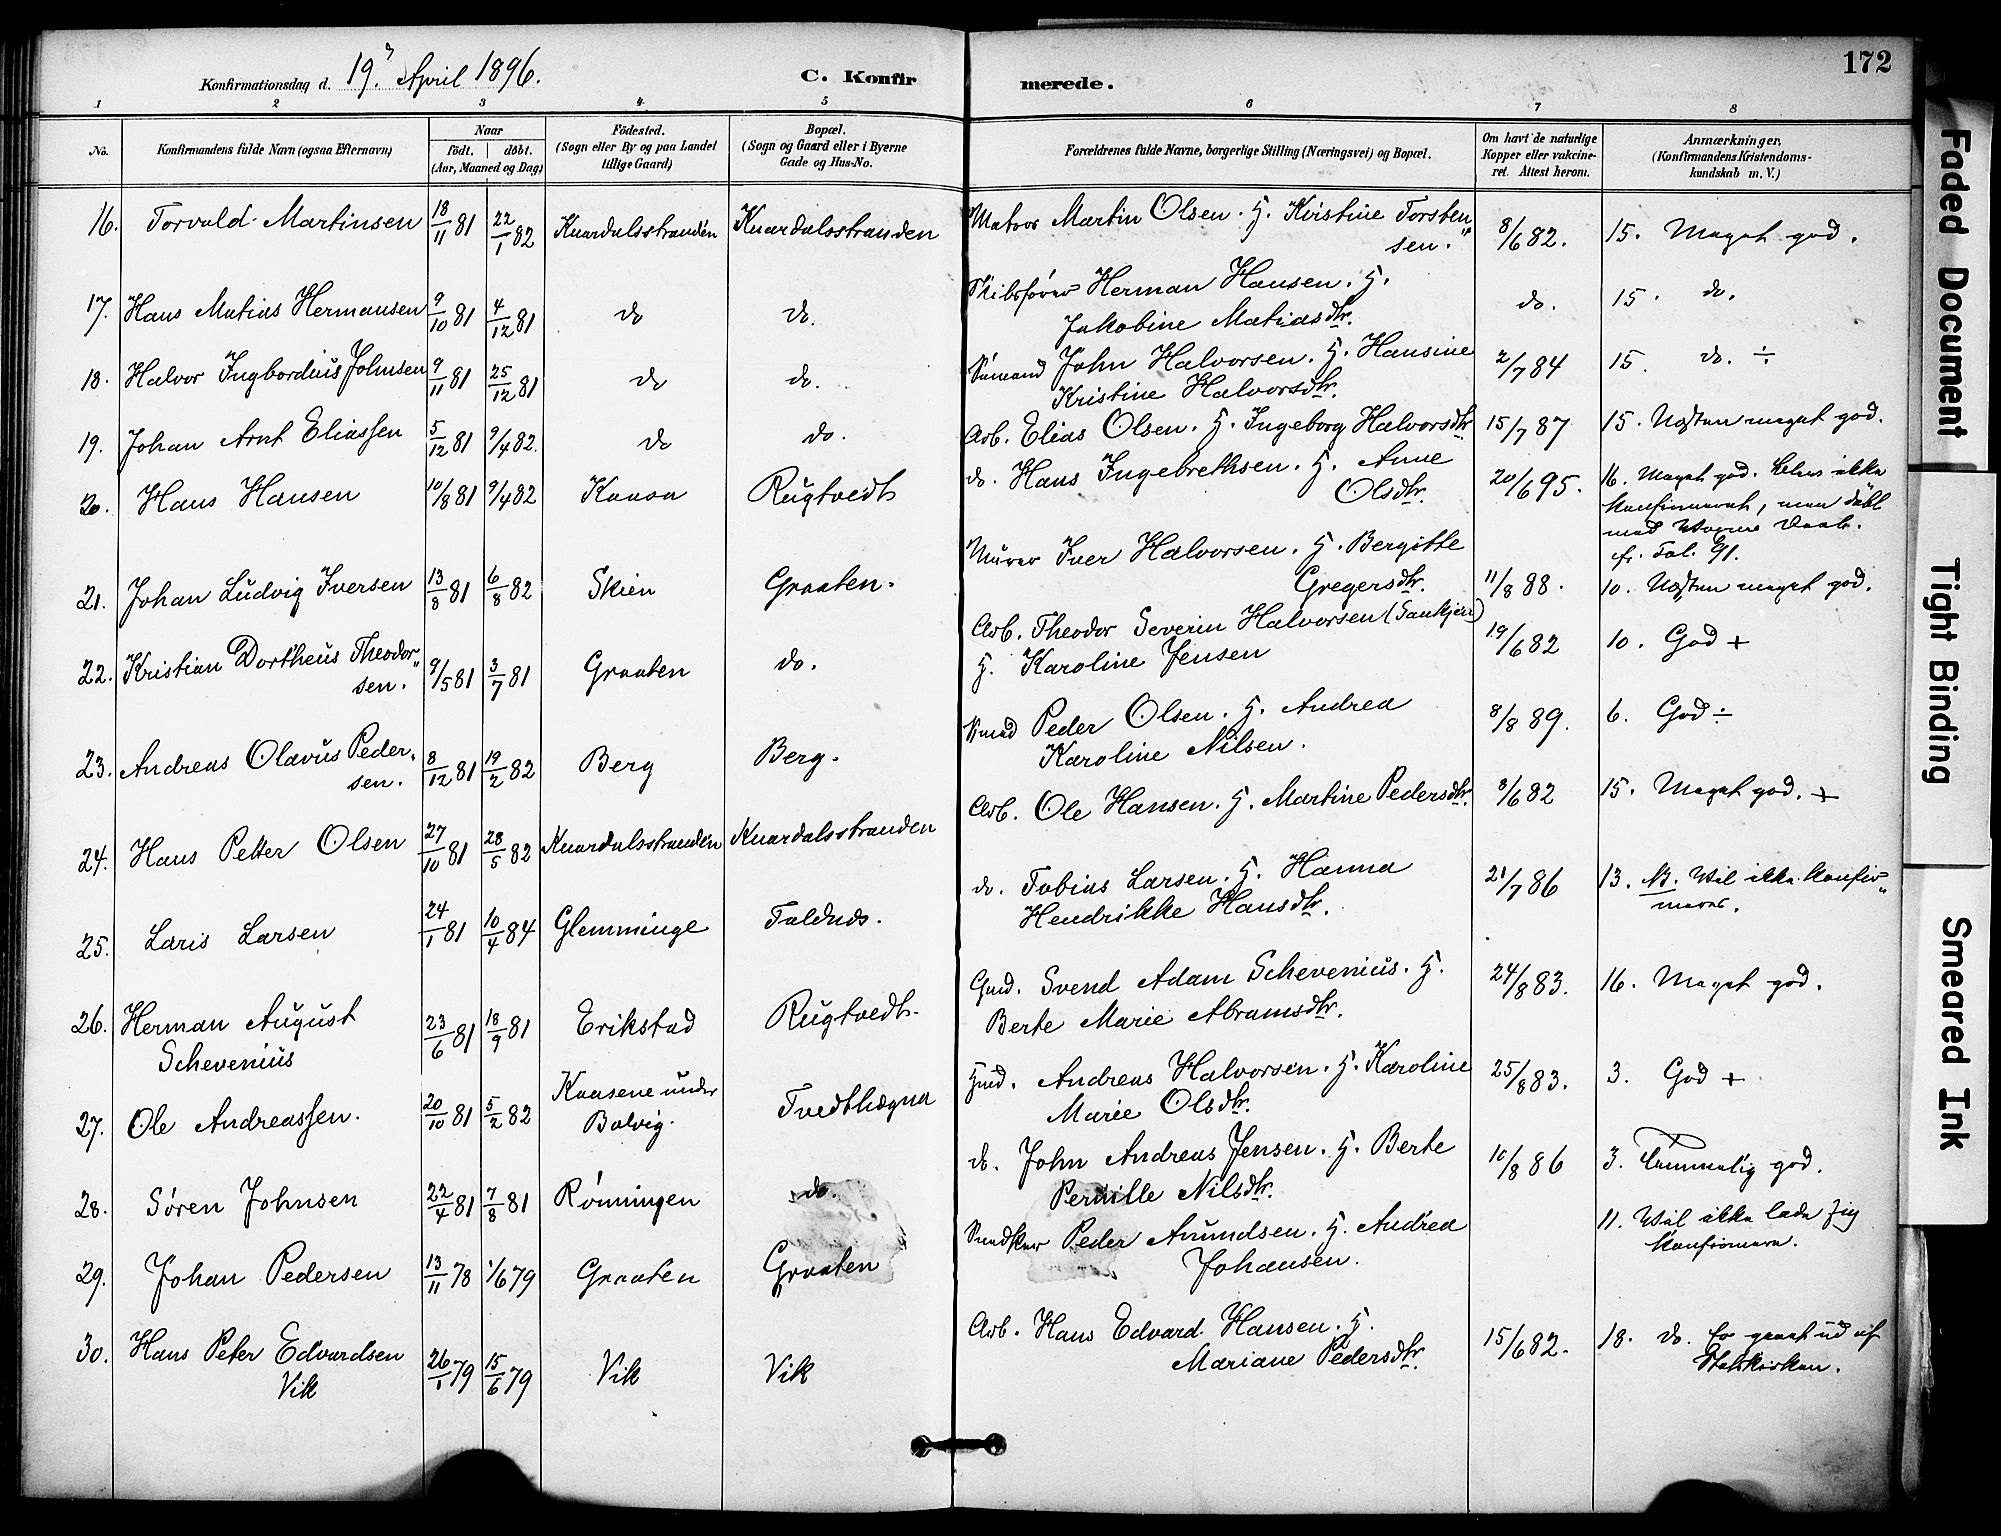 172
Konfirmationsdag d. 19de April 1896.
C. Konfirmerede.
1 2 3 4 5 6 7 8
No.
Konfirmandens fulde Navn (ogsaa Efternavn)
Naar
födt. döbt.
(Aar, Maaned og Dag)
Födested.
(Sogn eller By og paa Landet
tillige Gaard)
Bopæl.
(Sogn og Gaard eller i Byerne
Gade og Hus-No.
Forældrenes fulde Navne, borgerlige Stilling (Næringsvei) og Bopæl.
Om havt de naturlige
Kopper eller vakcine-
ret. Attest herom.
Anmærkninger,
(Konfirmandens Kristendoms-
kundskab m. V.)
16. Torvald Martinsen 18/11 81 22/1 82 Knardalsstranden Knardalsstranden Matros Martin Olsen. H. Kirstine Torsten
sen. 8/6 82. 15. Meget god.
17. Hans Matias Hermansen 9/10 81 4/12 81 do do. Skibsfører Herman Hansen. H.
Jakobine Matiasdtr. do. 15. do.
18. Halvor Ingbordius Johnsen 9/11 81 25/12 81 do do. Sömand John Halvorsen. H. Hansine
Kristine Halvorsdtr. 2/7 84 15. do. ÷
19. Johan Arnt Eliassen 5/12 81 9/4 82. do do. Arb. Elias Olsen. H. Ingeborg Halvorsdtr 15/7 87 15. Næsten meget god.
20. Hans Hansen 10/8 81 9/4 82 Kaasa Rugtvedt do. Hans Ingebrethsen. H. Anne
Olsdtr. 20/6 95. 16. Meget god. Blev ikke
konfirmeret, men döbt
med Voxne Daab.
cfr. Fol. 91.
21. Johan Ludvig Iversen 13/8 81 6/8 82 Skien Graaten. Murer Iver Halvorsen. H. Bergitte
Gregersdtr. 11/8 88. 10. Næsten meget god.
22. Kristian Dortheus Theodor
sen. 9/5 81 3/7 81 Graaten do. Arb. Theodor Severin Halvorsen (Sankjær)
H. Karoline Jensen 19/6 82 10. God +
23. Andreas Olavus Peder
sen. 8/12 81 19/2 82 Berg Berg. Smed Peder Olsen. H. Andrea
Karoline Nilsen. 8/8 89. 6. God ÷
24. Hans Petter Olsen 27/10 81 28/5 82 Knardalsstranden Knardalsstranden Arb. Ole Hansen. H. Martine Pedersdtr. 8/6 82 15. Meget god. +
25. Laris Larsen 24/1 81 10/4 84 Glemminge Faldnes. do. Tobias Larsen. H. Hanna
Hendrikke Hansdtr. 21/7 86 13. N. Vil ikke konfir
meres.
26. Herman August
Schevenius 23/6 81 18/9 81 Erikstad Rugtvedt. Gmd. Svend Adam Schevenius. H.
Berte Marie Abramsdtr. 24/8 83. 16. Meget god.
27. Ole Andreassen. 20/10 81 5/2 82 Kaasene under
Bolvig. Tvedthægna Hmd. Andreas Halvorsen. H. Karoline
Marie Olsdtr. 25/8 83. 3. God +
28. Søren Johnsen 22/4 81 7/8 81 Rønningen do. do. John Andreas Jensen. H. Berte
Pernille Nilsdtr. 10/8 86 3. Temmelig god.
29. Johan Pedersen 13/11 78 1/6 79 Graaten Graaten Snedker Peder Amundsen. H. Andrea
Johansen. 11. Vil ikke lade sig
konfirmere.
30. Hans Peter Edvardsen
Vik 26/1 79 15/6 79 Vik Vik Arb. Hans Edvard Hansen. H.
Mariane Pedersdtr. 15/6 82. 18. do. Er gaaet ud af
Statskirken.
Faded Document
Tight Binding
Smeared Ink